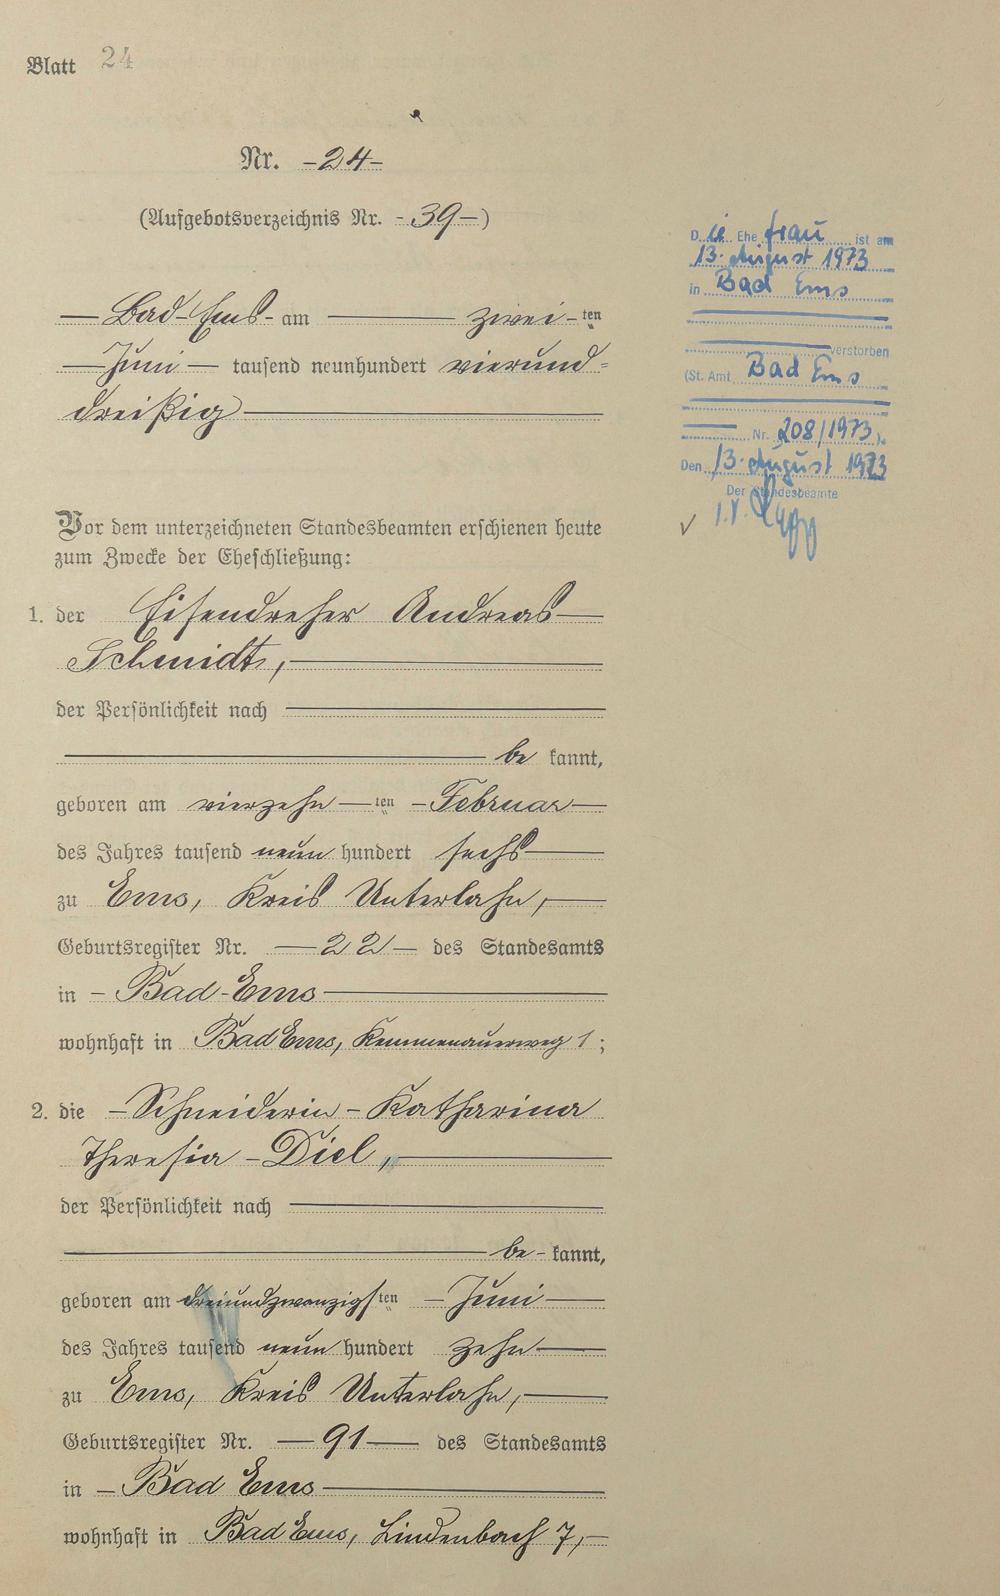 Blatt 24
Nr. -24-
(Aufgebotsverzeichnis Nr. -39-)
Bad-Ems- am zwei-ten
Juni tausend neunhundert vierund-
dreißig
Vor dem unterzeichneten Standesbeamten erschienen heute
zum Zwecke der Eheschließung:
1. der Eisendreher Andreas
Schmidt,
der Persönlichkeit nach
be kannt,
geboren am vierzehn ten - Februar
des Jahres tausend neun hundert sechs
zu Ems, Kreis Unterlahn,
Geburtsregister Nr. 22 des Standesamts
in - Bad-Ems
wohnhaft in Bad Ems, Kemmenauerweg 1;
2. die - Schneiderin - Katharina
Theresia - Diel,
der Persönlichkeit nach
be- kannt,
geboren am dreiundzwanzigsten - Juni
des Jahres tausend neun hundert zehn
zu Ems, Kreis Unterlahn,
Geburtsregister Nr. 91 des Standesamts
in - Bad Ems
wohnhaft in Bad Ems, Lindenbach 7,
Die Ehefrau ist am
13. August 1973
in Bad Ems
verstorben
(St. Amt Bad Ems
Nr. 208/1973).
Den 13. August 1973
Der Standesbeamte